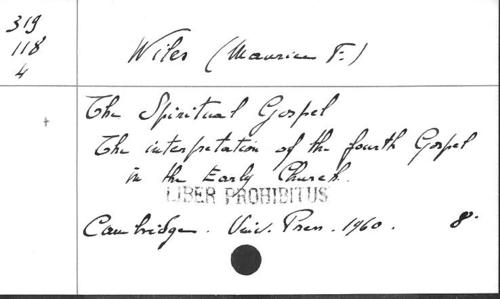 319
118
4
Wiles (Maurice F.)
The Spiritual Gospel
The interpretation of the fourth Gospel
in the Early Church.
LIBER PROHIBITUS
Cambridge. Univ. Press. 1960. 8°.